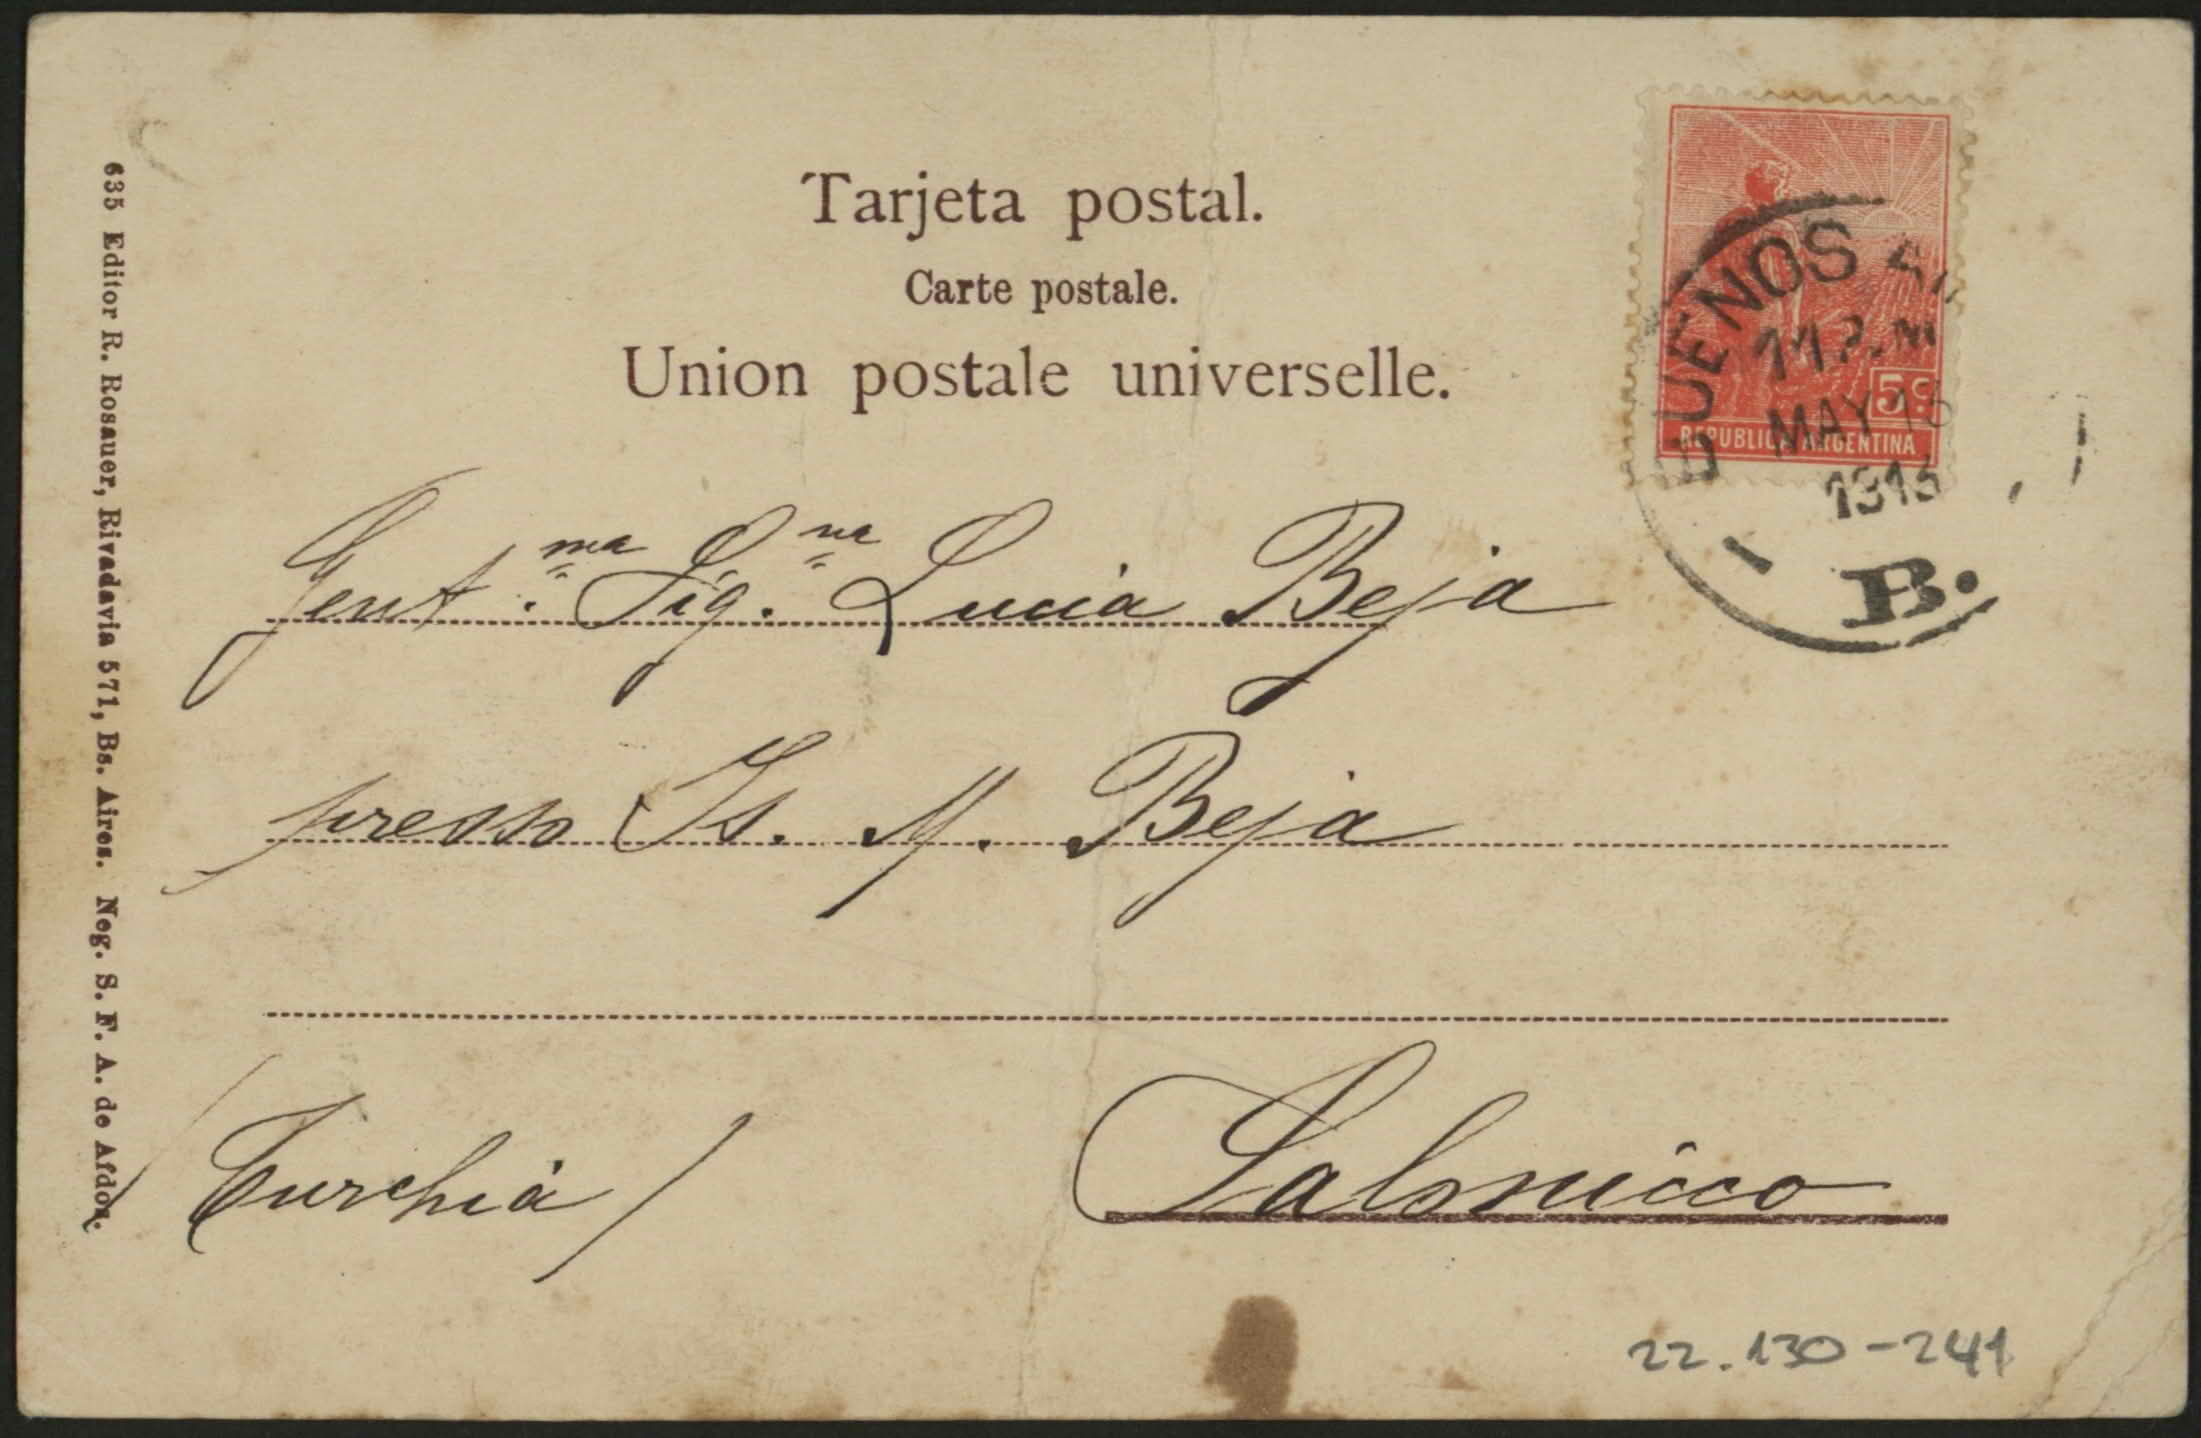 Tarjeta postal.
Carte postale.
Union postale universelle.
5c.
REPUBLICA ARGENTINA
BUENOS AI
11 P.M
MAY 15
1913
B.
Gent.ma Sig.na Lucia Beja
presso Is. M. Beja
Turchia / Salonicco
635 Editor R. Rosauer, Rivadavia 571, Bs. Aires. Neg. S. F. A. de Afdos.
22.130-241